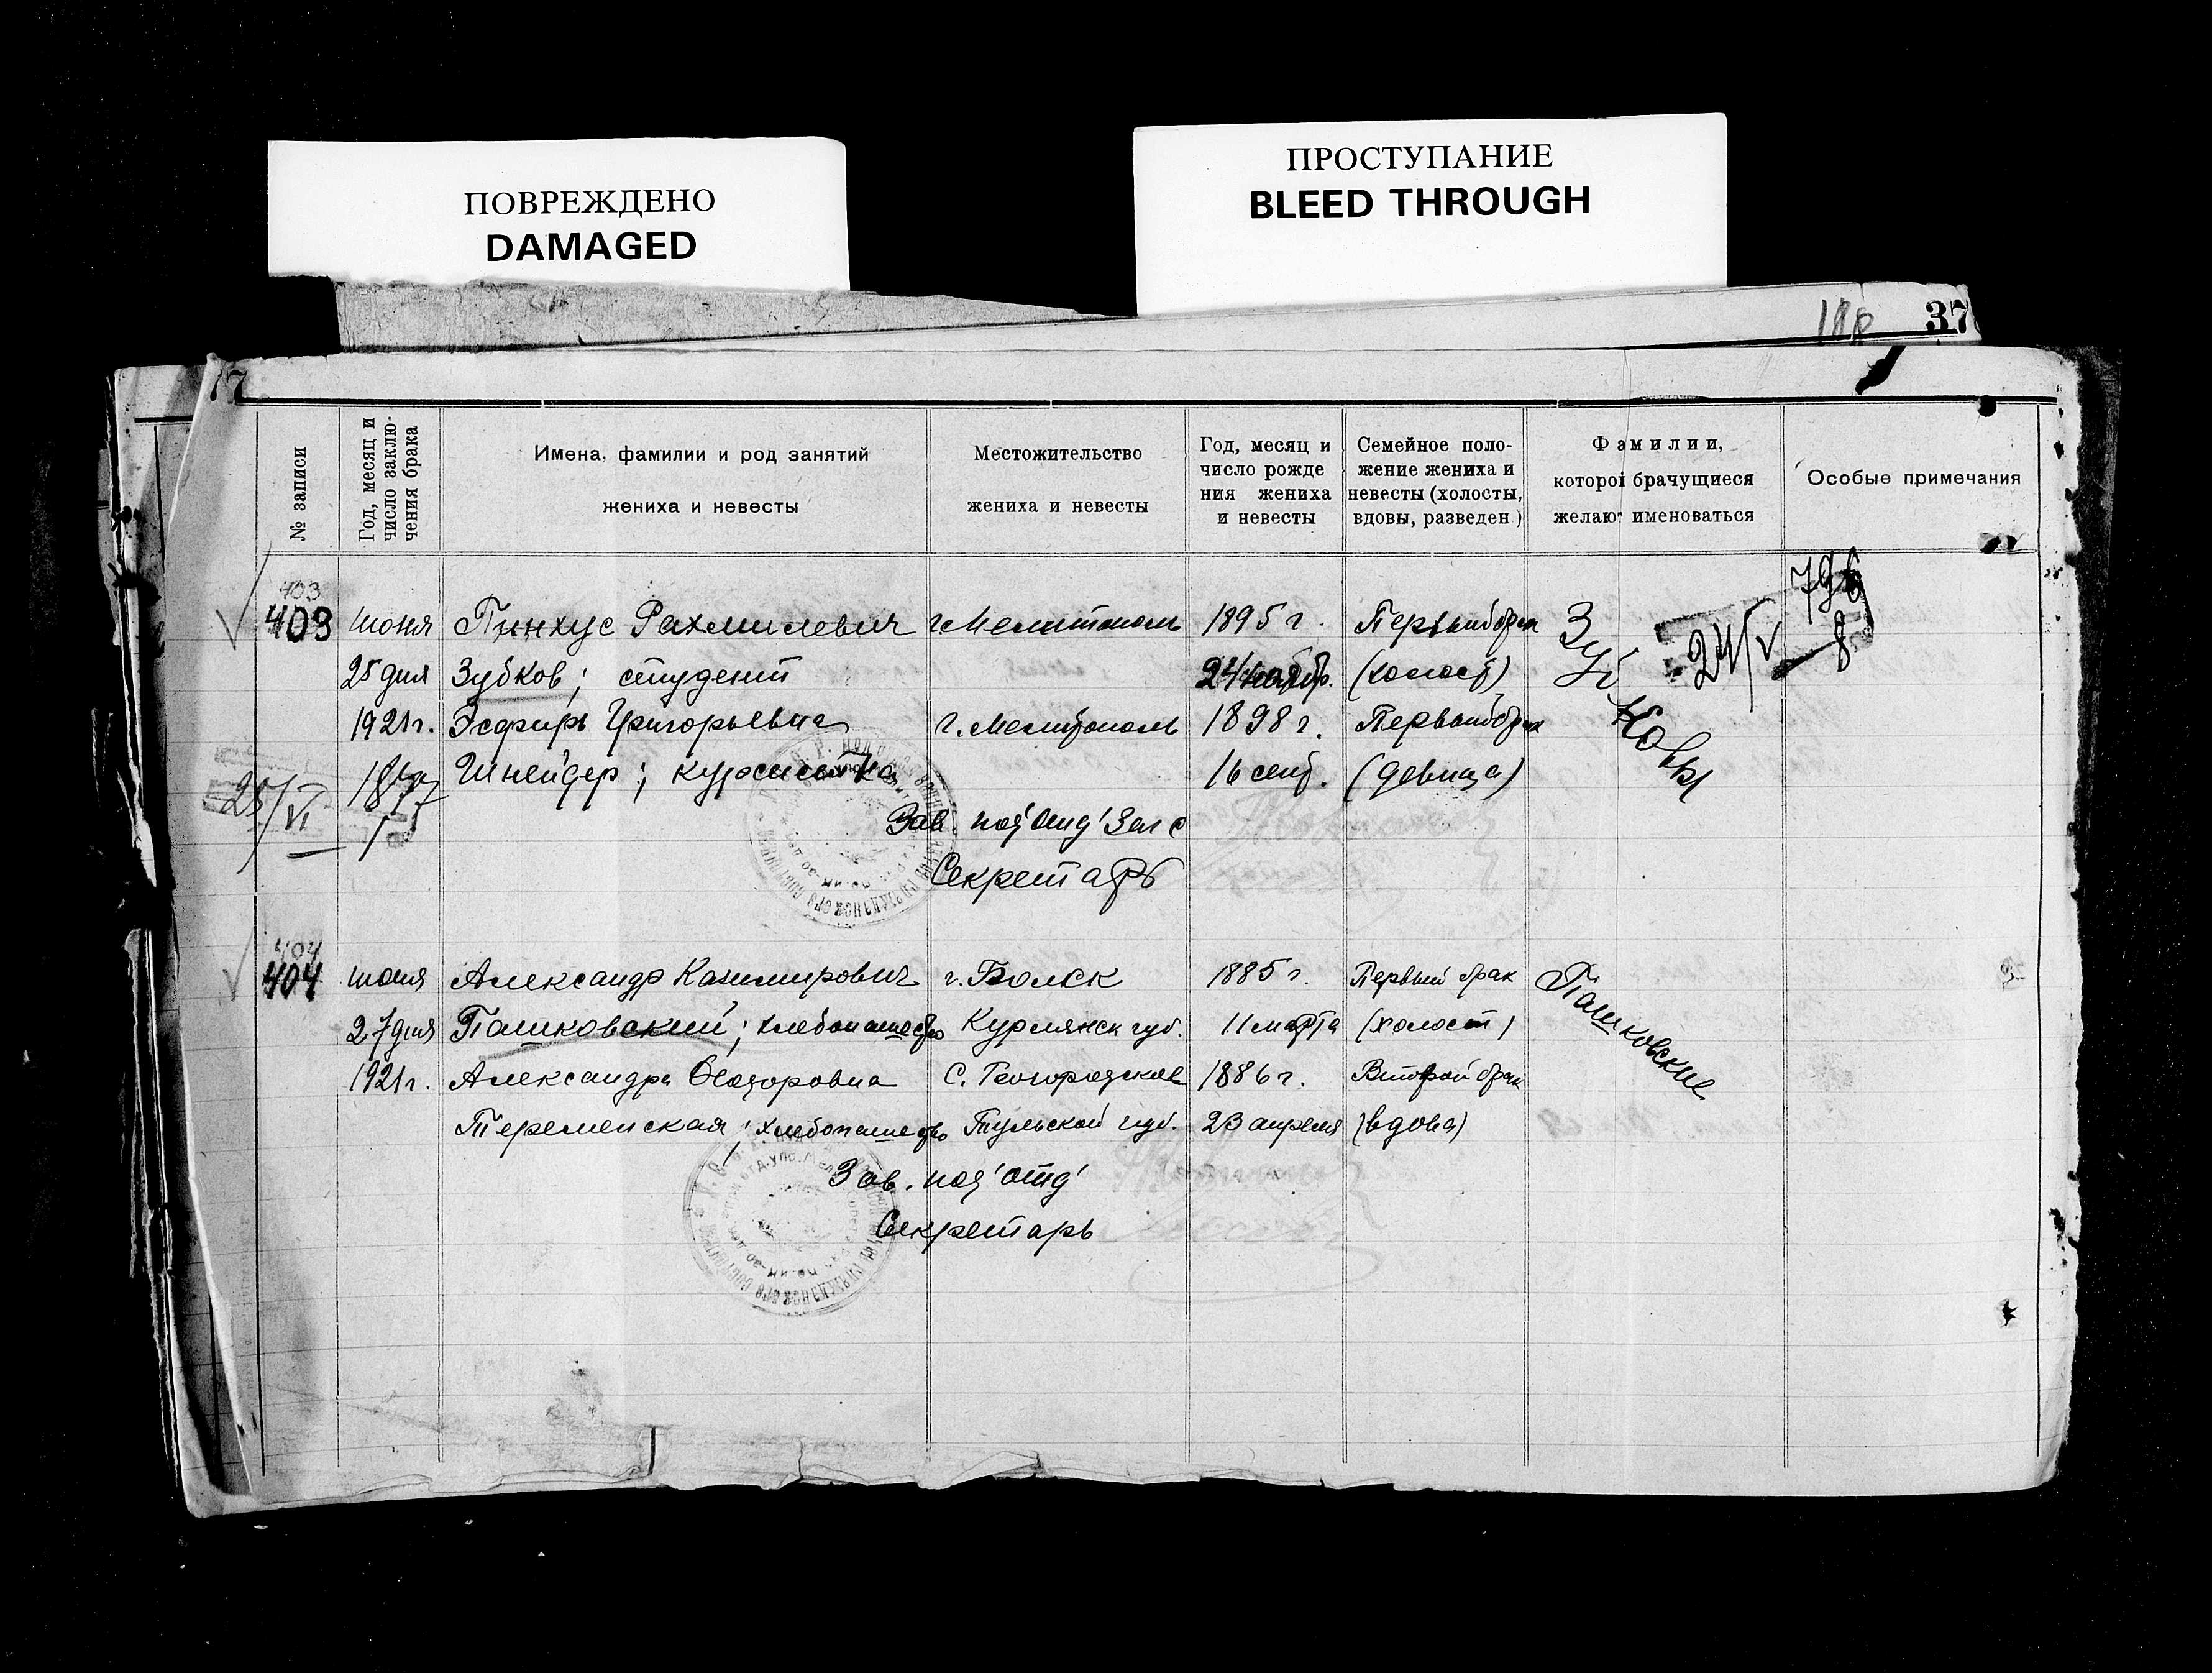 ПОВРЕЖДЕНО
DAMAGED
ПРОСТУПАНИЕ
BLEED THROUGH
37
№ записи
Год, месяц и
число заклю-
чения брака
Имена, фамилии и род занятий
жениха и невесты
Местожительство
жениха и невесты
Год, месяц и
число рожде
ния жениха
и невесты
Семейное поло-
жение жениха и
невесты (холосты,
вдовы, разведен)
Фамилии,
которой брачущиеся
желают именоваться
Особые примечания
403
403 июня Пинхус Рахмилевич г. Мелитополь 1895 г. Первый брак
25 дня Зубков; студент 24 ноябр. (холост)
1921 г. Эсфирь Григорьевна г. Мелитополь 1898 г. Первый брак
Шнейдер; курсистка 16 сент. (девица)
Зубковы
24/V
25/VI
Зав. под'отд' Загс
Секретарь
404
404 июня Александр Казимирович 1885 г. Первый брак
27 дня Пашковский; хлебопашество Курлянск губ. 11 марта (холост)
1921 г. Александра Феодоровна с. Богородское 1886 г. Второй брак
Теременская; хлебопашество Тульской губ. 23 апреля (вдова)
Пашковские
Зав. под'отд'
Секретарь